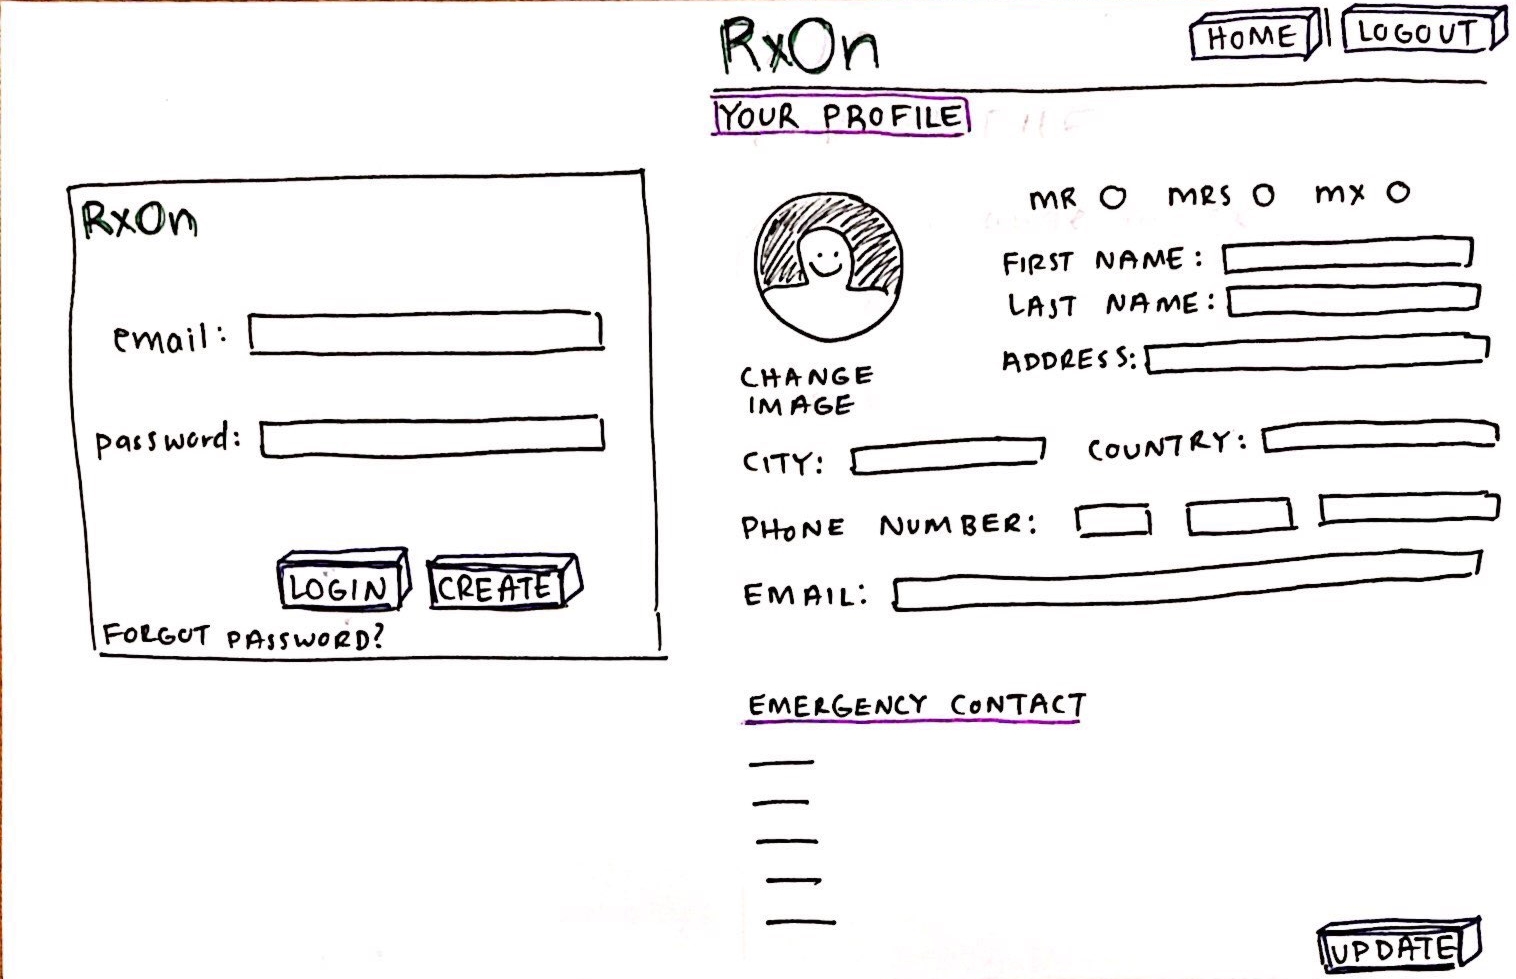 RxOn
email:
password:
LOGIN CREATE
FORGOT PASSWORD?
RxOn
HOME | LOGOUT
YOUR PROFILE
MR MRS MX
FIRST NAME:
LAST NAME:
ADDRESS:
CHANGE
IMAGE
CITY: COUNTRY:
PHONE NUMBER:
EMAIL:
EMERGENCY CONTACT
UPDATE